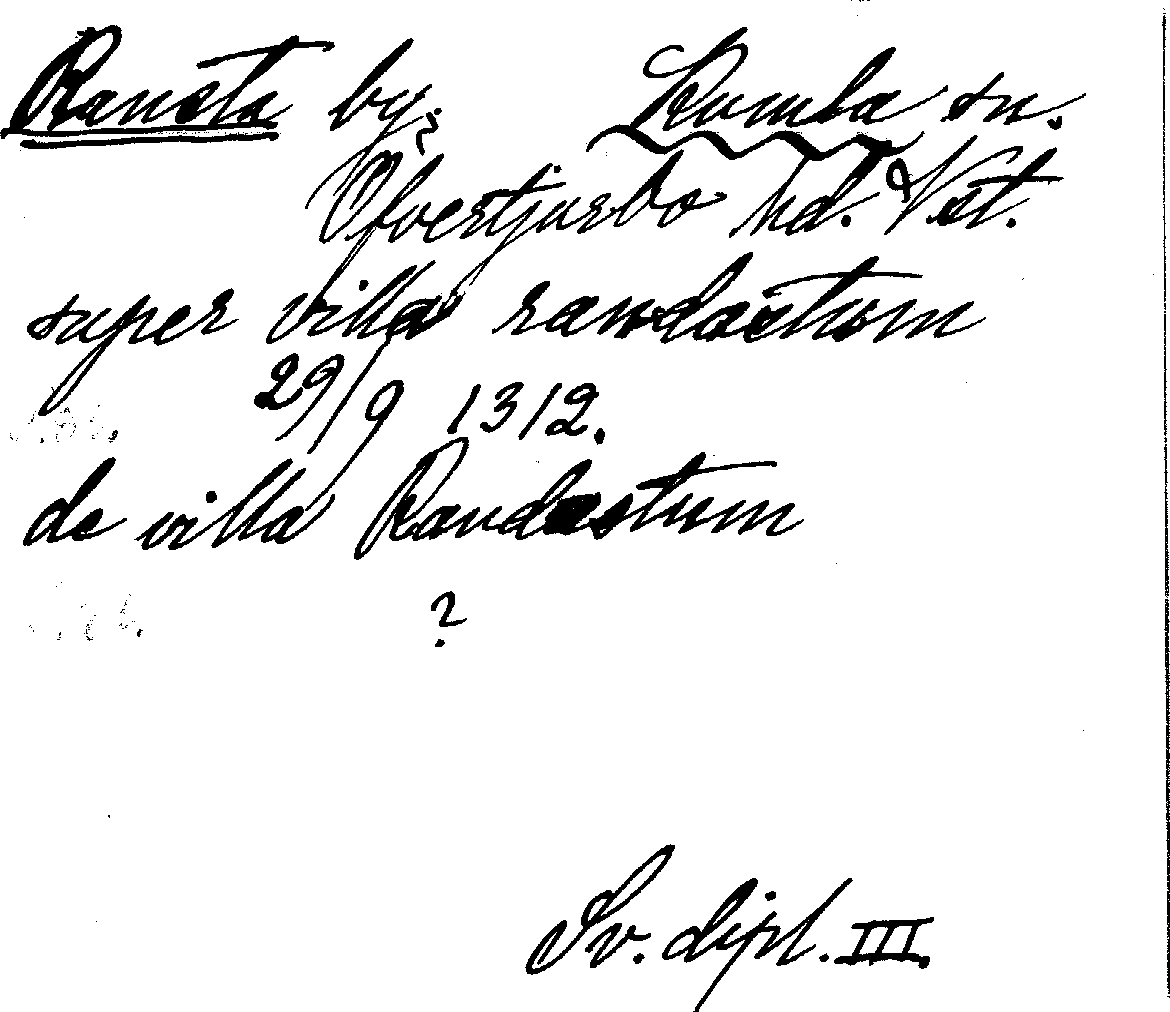 Ransta by, Kumla sn.
Öfvertjurbo hd. Vst.
super villa randæstum
29/9 1312.
de villa Randæstum
?
Sv. dipl. III.